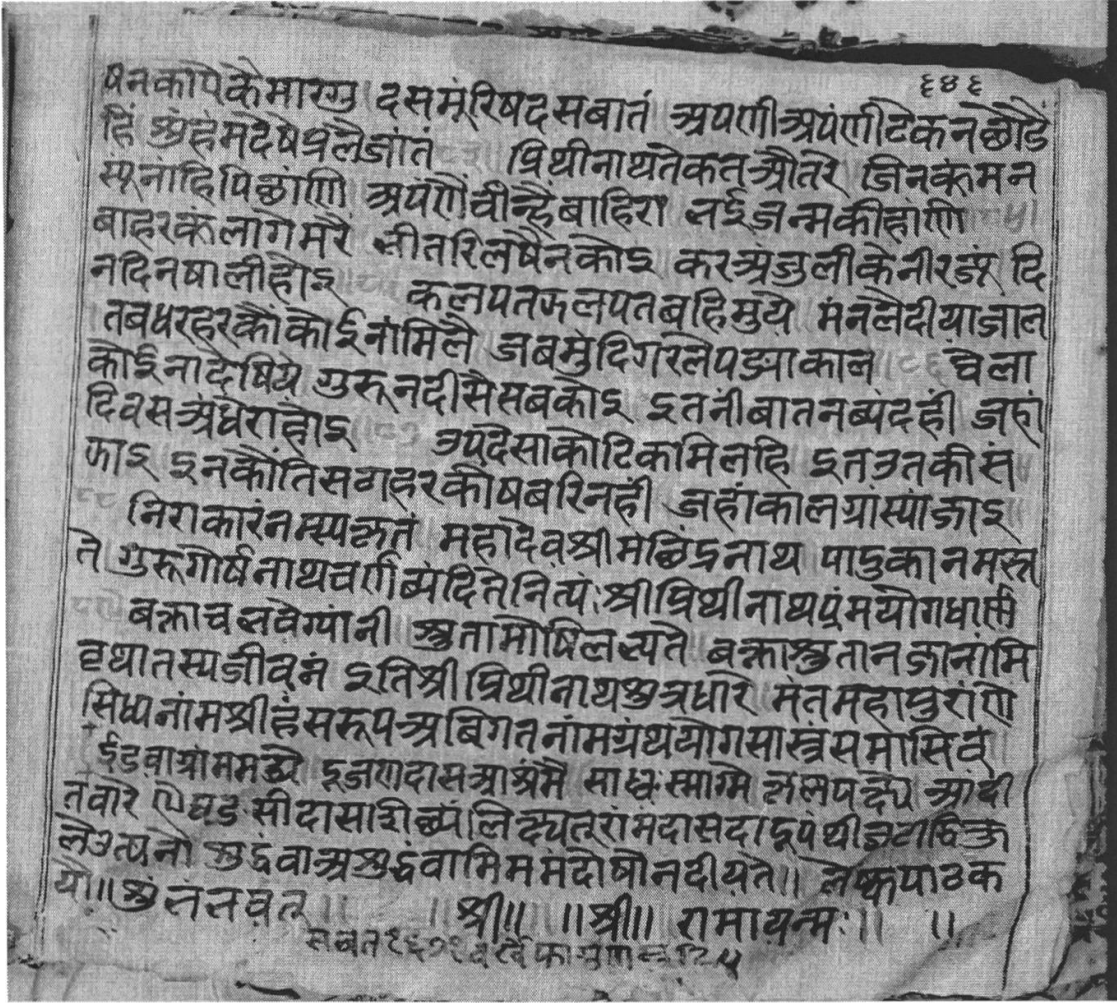 ६४६
षनकापेकैमारगु दसमूंरिषदसबातं अपणीअपंणीटेकनछौडै
हिं अंहंमदेषेप्रलैजांतं प्रिथीनाथतेकतऔतरे जिनकूंमन
स्यूनांहिपिछांणि अपंणैचीन्हैंबाहिरा लईजन्मकीहांणि
बाहरकूंलागेमरै भीतरिलषैनकोइ करअंजुलीकेनीरज्यूं दि
नदिनषालीहोइ कलपतजलपतबहिमुये मंनलैदीयाजाल
तबधरहरकौंकोईनांमिलै जबमुंदिगरलैपड्याकाल चेला
कोईनादेषिये गुरूनदीसैसबकोइ इतनींबातनब्यंदहीं जहां
दिवसअंधेराहोइ उपदेसाकोटिकमिलहि इतउतकीसं
काइ इनकौतिसगहरकीषबरिनहीं जहांकालग्रास्यांजाइ
निराकारंनमस्यकृतं महादेवश्रीमछिंद्रनाथ पादुकानमस्त
ते गुरूगोर्षनाथचर्णब्यंदितेनित्यं श्रीप्रिथीनाथप्रंमयोगधार्णी
बक्ताचभवेग्यांनी श्रुतामोषिलभ्यते बक्ताश्रुतानजानांमि
वृथातस्यजीवनं इतिश्रीप्रिथीनाथसुत्रधारे मंतमहापुरांणे
सिध्यनांमश्रीहंसरूपअबिगतनांमग्रंथयोगसास्त्रंसमासिवं
ईडवाग्रांममध्ये दूजणदासआश्रंमे साध
तवारे सीदासा लिष्यतरांमदासदादूपंथी
लेउत्पनो श्रुद्धंवाअश्रुद्धंवामिममदोषोनदीयते॥ लेष्कपाठक
यो॥ श्रुंभंभवत ॥श्री॥ ॥श्री॥ रामायन्मः॥ ॥